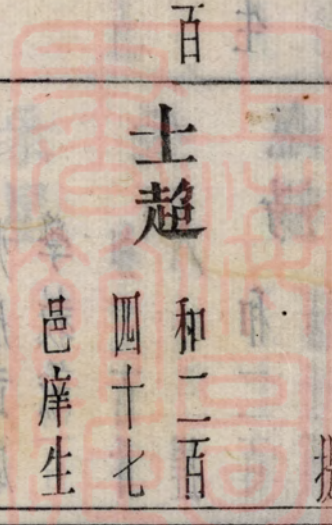 百
士超
和二百
四十七
邑庠生